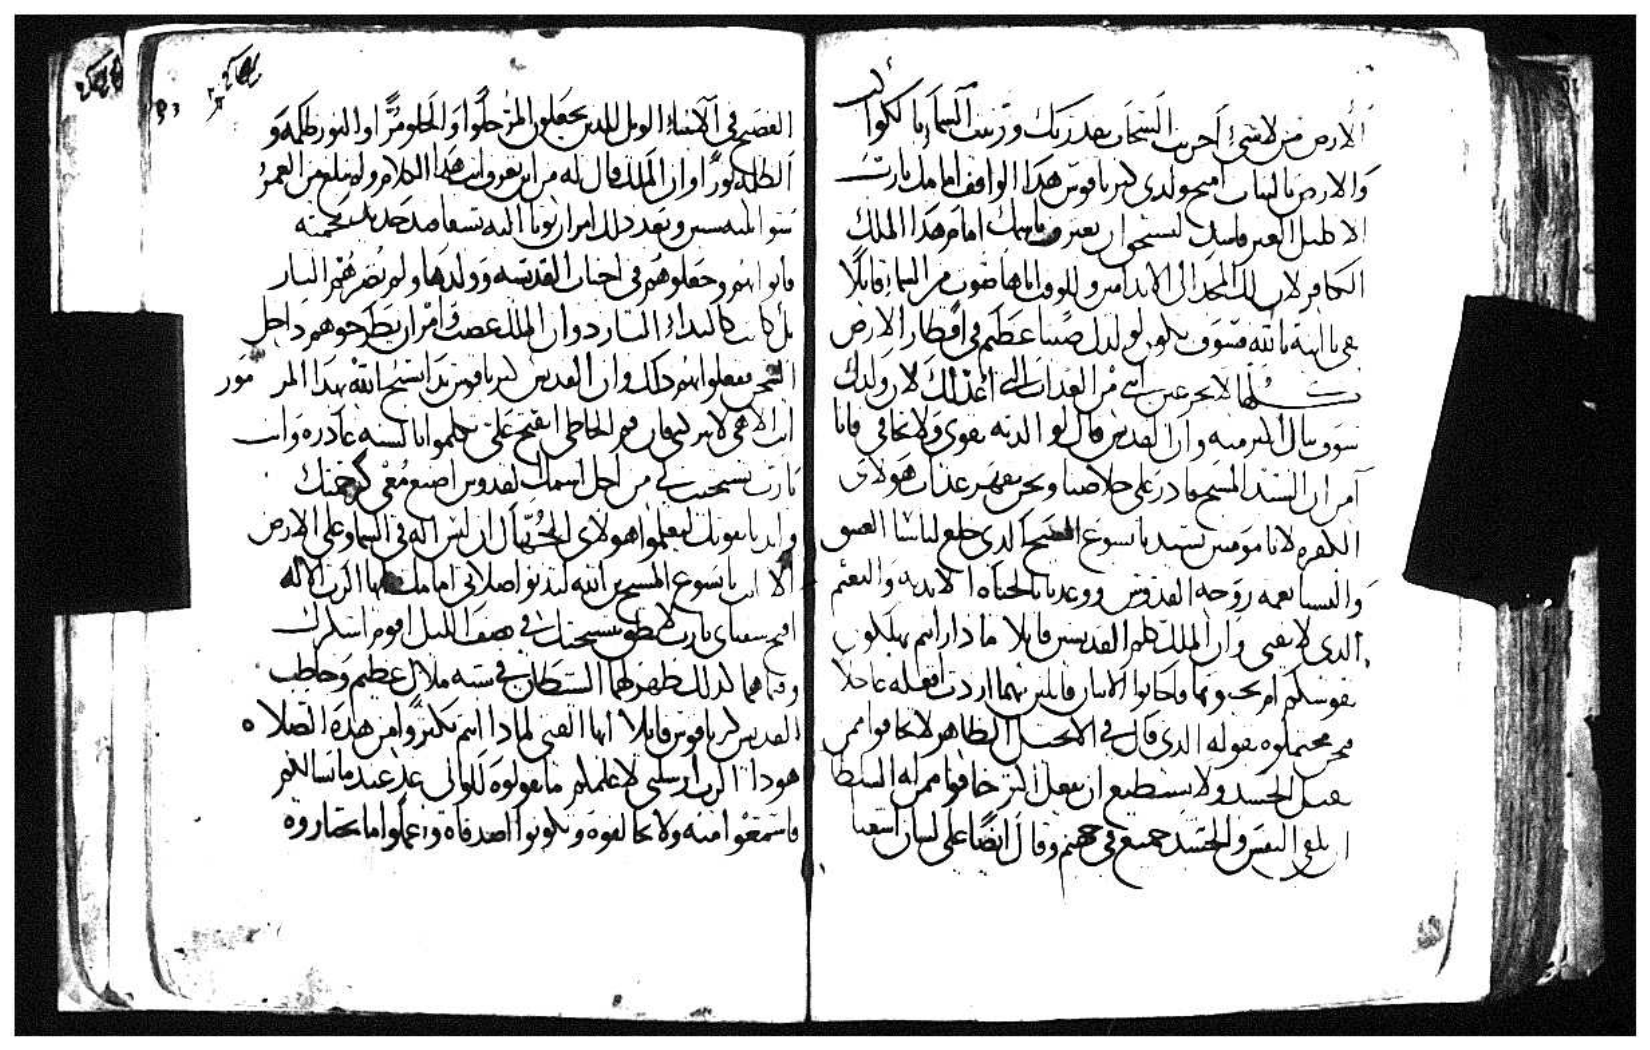 الارض من لاشي اجريت السحاب بقدرتك وزينت السما بالكواكب
والارض بالنبات امنح ولدي كيرياقوس هذا الواقف امامك يارب
الاكليل الغير فاسد ليستحق ان يعترف باسمك امام هذا الملك
الكافر لان لك المجد الى الابد امين وللوقت اتاها صوت من السما قايلا
يا ابنة الله فسوف يكون لولدك صيتا عظيم في اقطار الارض
كلها لا تجزعين من العذاب الذي لان ولدك
سوف ينال اكثر منه وان القديس قال لوالدته تقوي ولا تخافي فانا
امن ان السيد المسيح قادر على خلاصنا ونحن نقهر عذاب هولاي
الكفره لانا مومنين بسيدنا يسوع المسيح الذي خلع لباسنا العتيق
والبسنا نعمه روحه القدوس ووعدنا بالحياه الابديه والنعيم
الذي لا يفنى وان الملك كلم القديسين قايلا ماذا انتم تهلكون
نفوسكم ام تحبونها فاجابوا الابرار قايلين مهما اردت افعله عاجلا
نحن نحتمله بقوله الذي قال في الانجيل الطاهر لا تخافوا ممن
يقتل الجسد ولا يستطيع ان يفعل اكثر خافوا ممن له السلطا
ان يلقي النفس والجسد جميع في جهنم وقال ايضا على لسان اشعيا
الفصيح في الانبيا الويل للذين يجعلون المر حلوا والحلو مرا والنور ظلمه و
الظلمه نورا وان الملك قال له من اين تعرف انت هذا الكلام ولم تبلغ من العمر
سوا ثلثه سنين وبعد ذلك امر ان يوتا اليه بتسعا حديد محميه
فاتوا بهم وجعلوهم في اجناب القديسه وولدها ولم تضرهم النار
بل كانت كالنداء البارد وان الملك غضب وامر ان يطرحوهم داخل
السجن ففعلوا بهم ذلك وان القديس كيرياقوس بدا يسبح الله بهذا المزمور
انت الاهي لان كل فم الخاطي انفتح علي تكلموا بالسنه غادره وانت
يارب من اجل اسمك القدوس اصنع معي كرحمتك
وايدنا بقوتك ليعلموا هولاي الجهال ان ليس اله في السما وعلى الارض
الا انت يا يسوع المسيح بن الله لتدنوا صلاتي امامك ايها الرب الاله
افتح شفتاي يارب لانطق بتسبحتك في نصف الليل اقوم اشكرك
وفيما هما كذلك ظهر لهما الشيطان في شبه ملاك عظيم وخاطب
القديس كيرياقوس قايلا ايها الفتى لماذا انتم تكثروا من هذه الصلاه
هوذا الرب ارسلني لاعلمكم ما تقولوه للوالي غد عند ما تسالكم
فاستمعوا منه ولا تخالفوه وتكونوا اصدقاه واعملوا ما يختاروه